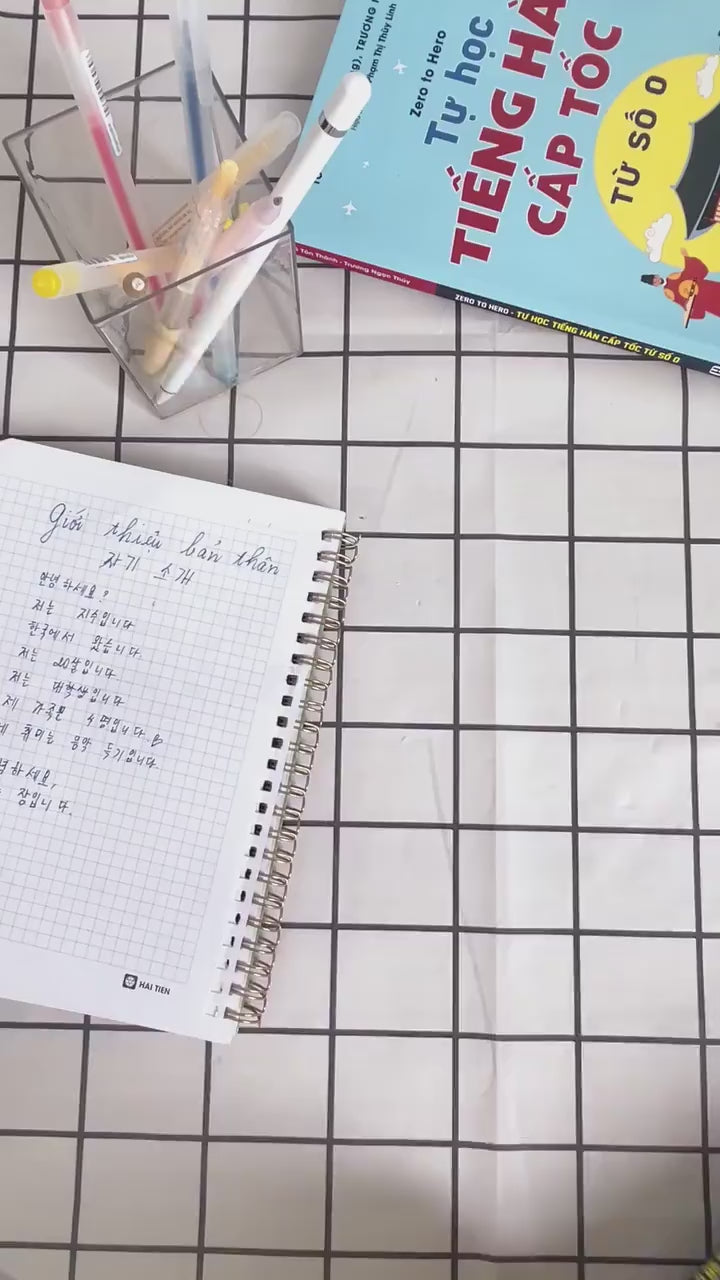 Zero to Hero
Tự học
TIẾNG HÀ
CẤP TỐC
TỪ SỐ 0
TRƯƠNG
Phạm Thị Thùy Linh
Tôn Thành - Trương Ngọc Thúy
ZERO TO HERO - TỰ HỌC TIẾNG HÀN CẤP TỐC TỪ SỐ 0
Giới thiệu bản thân
자기 소개
안녕하세요?
저는 지수입니다
한국에서 왔습니다.
저는 20살입니다
저는 대학생입니다
제 가족은 4명입니다.
취미는 음악 듣기입니다.
하세요,
장입니다.
HAI TIEN